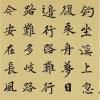 釣坐溪上忽
復乘舟夢日
邊行路難行
路難多歧路
今安在長風